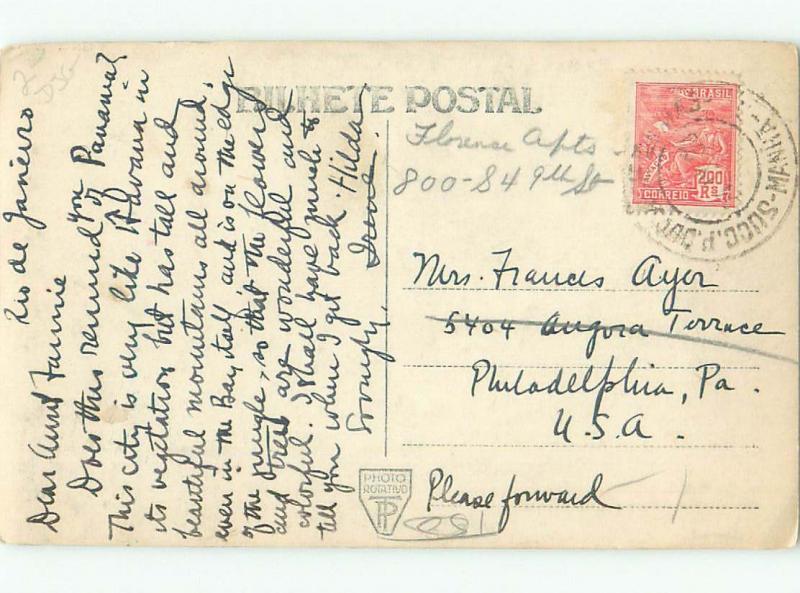 Rio de Janeiro
Dear Aunt Fannie
Does this remind you of Panama?
This city is very like Havana in
its vegetation but has tall and
beautiful mountains all around,
even in the Bay itself and is on the edge
of the jungle, so that the flowers
and trees are wonderful and
colorful. I shall have much to
tell you when I get back. Hilda
Lovingly, Irene
BILHETE POSTAL
Florence Apts -
800-S4 9th St
BRASIL
200
Rs
CORREIO
Mrs. Frances Ayer
5404 Angora Terrace
Philadelphia, Pa.
U.S.A.
Please forward
PHOTO
ROTATIVO